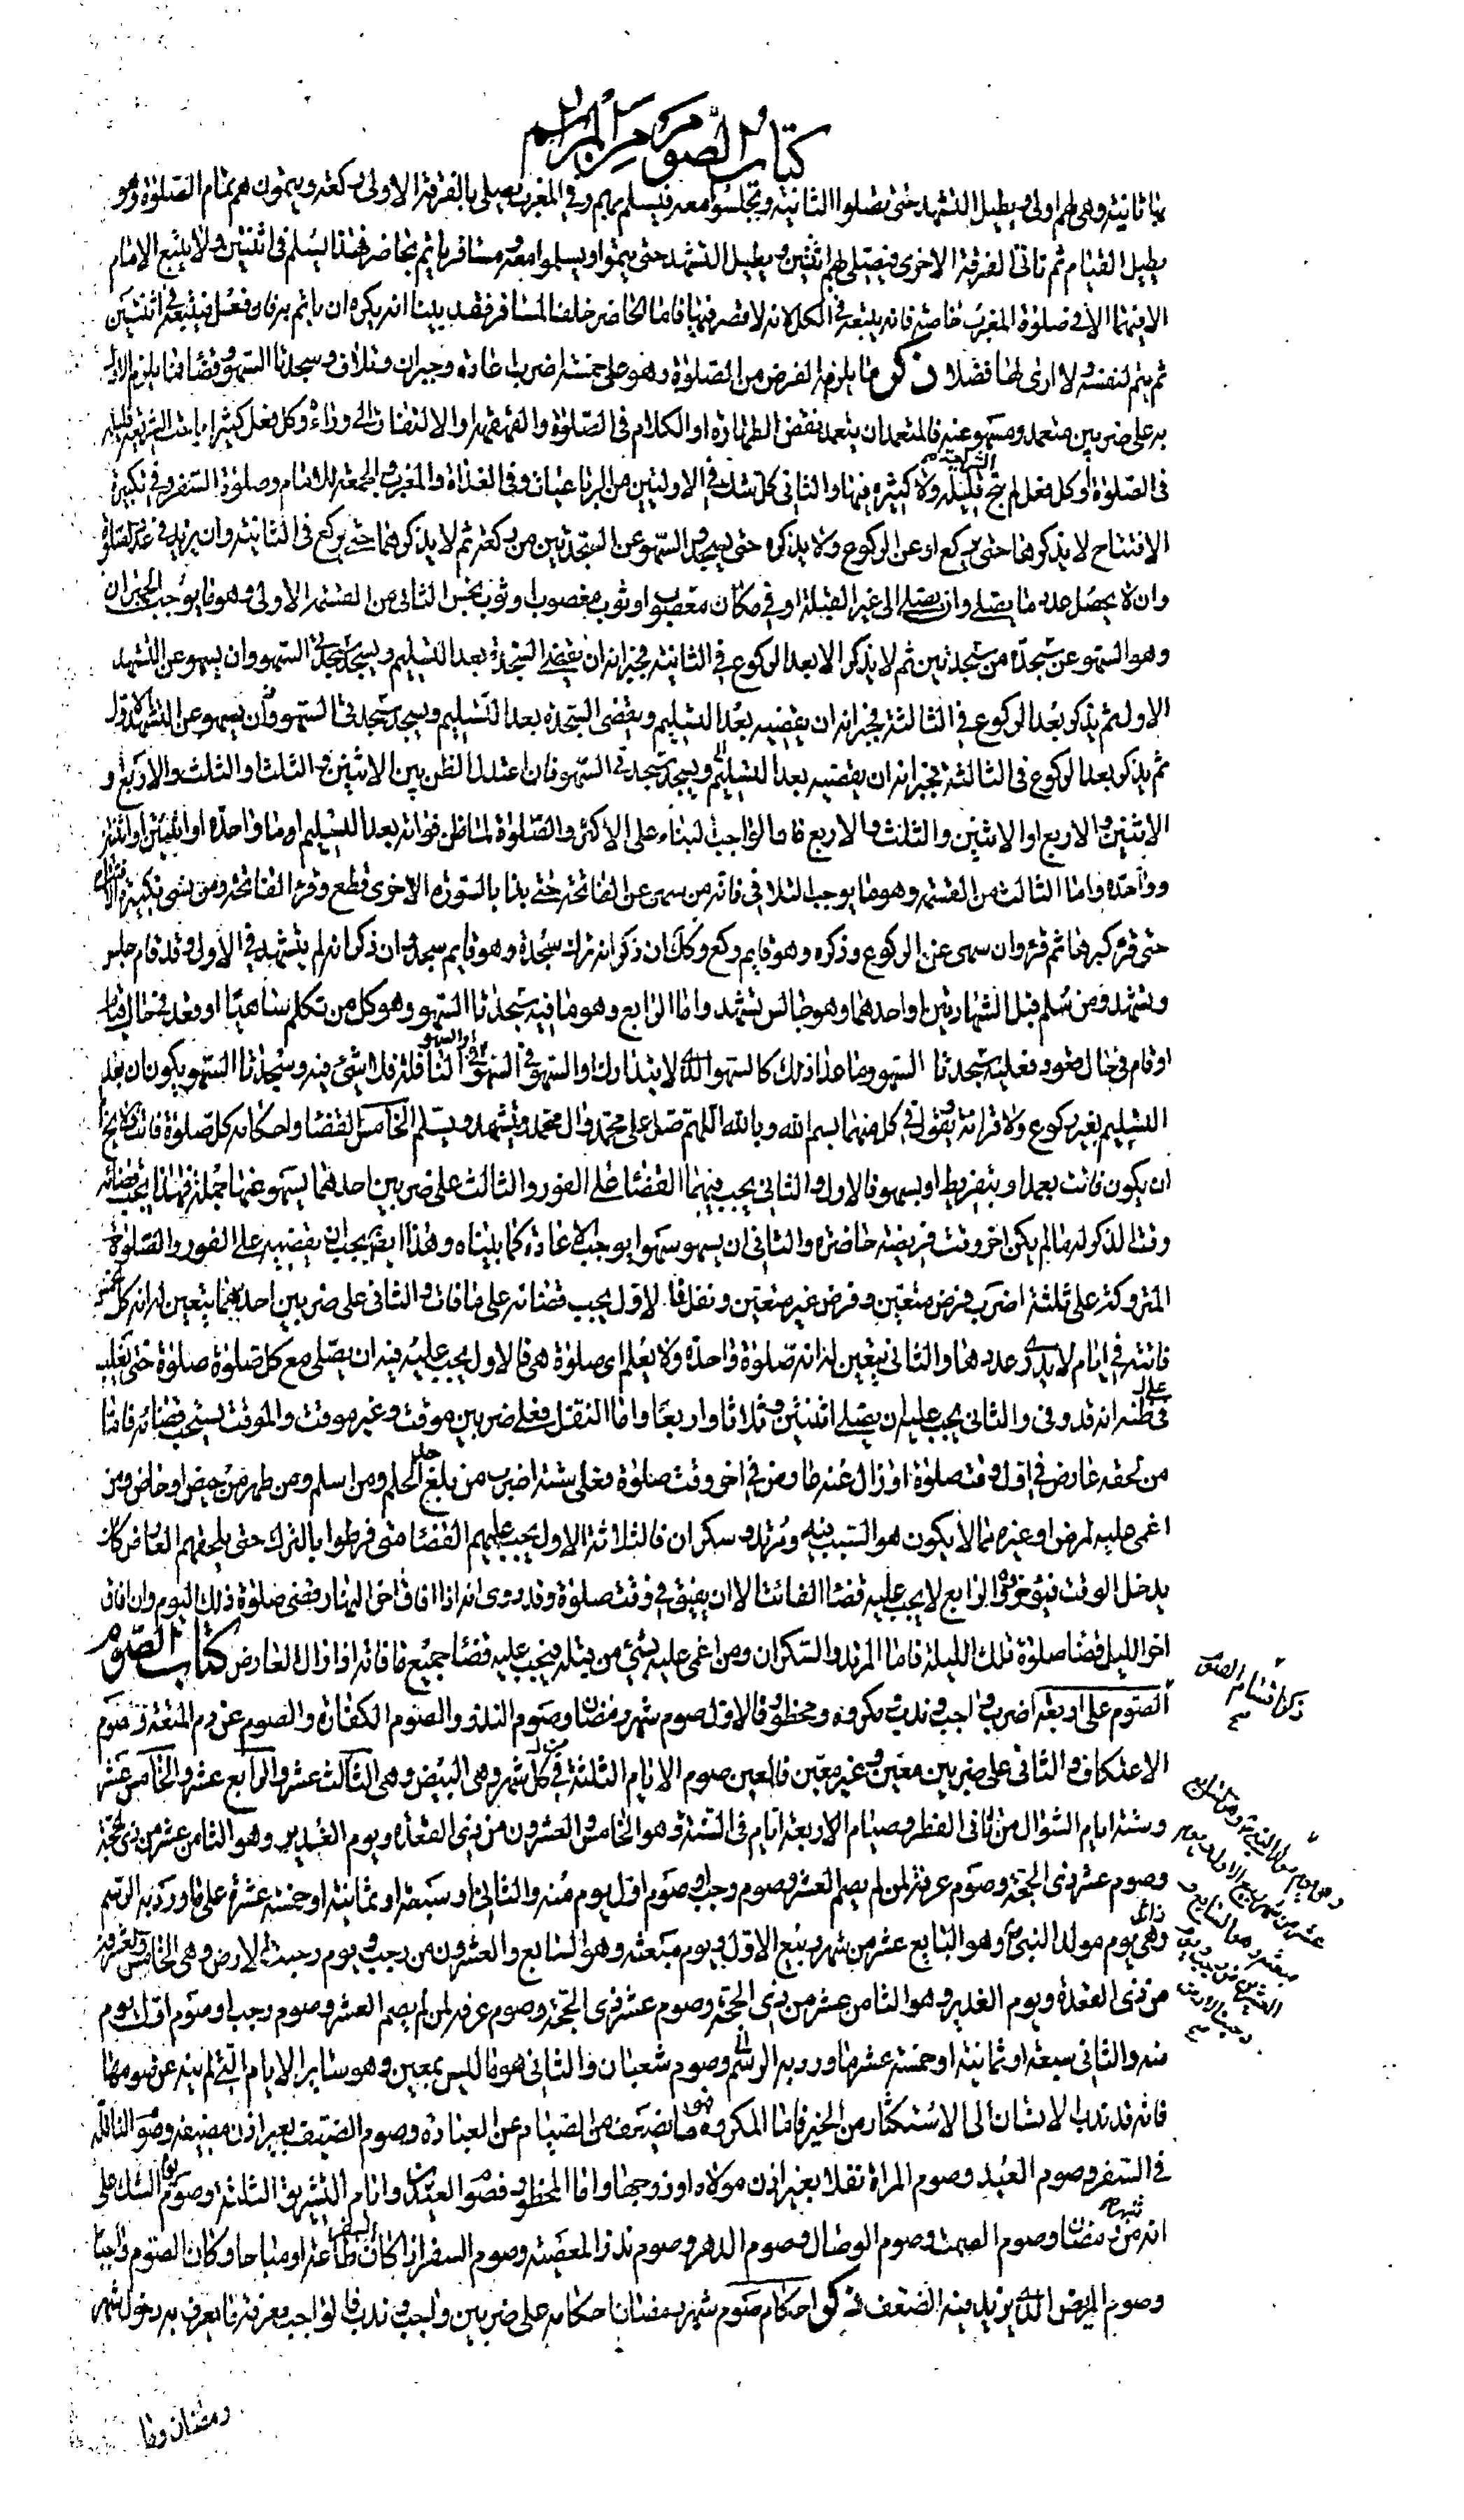 كتاب الصوم من المراسم
بها ثانيته وهى لهم اولى ويطيل التشهد حتى يصلوا الثانية ويجلسوا معه فيسلم بهم وفى المغرب يصلى بالفرقة الاولى ركعة ويتمون هم تمام الصلوة وهو
يطيل القيام ثم تاتى الفرقة الاخرى فيصلى بهم اثنتين ويطيل التشهد حتى يتموا ويسلموا معه ومسافر ياتم بحاضر فهذا يسلم فى اثنتين ولا يتبع الامام
الا فيهما الا فى صلوة المغرب خاصة فانه يتبعه فى الكل لانه لا قصر فيها فاما الحاضر خلف المسافر فقد بينا انه يكره ان ياتم به فان فعل فيتبعه فى اثنتين
ثم يتم لنفسه ولا ارى لها فضلا ذكر ما يلزم المفرض من الصلوة وهو على خمسة اضرب اعادة وجبران وتلاف وسجدتا السهو وقضاء فما يلزم الاول
به على ضربين متعمد ومسهو عنه فالمتعمد ان يتعمد نقض الطهارة او الكلام فى الصلوة والقهقهة والالتفات الى وراء وكل فعل كثير اباحت الشريعة قليله
فى الصلوة او كل فعل لم تبح الشريعة قليله ولا كثيره فيها والثانى كل شك فى الاولتين من الرباعيات وفى الغداة والمغرب والجمعة للامام وصلوة السفر وفى تكبيرة
الافتتاح لا يذكرها حتى يركع او عن الركوع ولا يذكره حتى يسجد والسهو عن السجدتين من ركعة ثم لا يذكرهما حتى يركع فى الثانية وان يزيد فى عدد الصلوة
وان لا يحصل عدد ما يصلى وان يصلى الى غير القبلة او فى مكان مغصوب او ثوب مغصوب او ثوب نجس الثانى من القسمة الاولى وهو ما يوجب الجبران
وهو السهو عن سجدة من سجدتين ثم لا يذكر الا بعد الركوع فى الثانية فجبرانه ان يقضى السجدة بعد التسليم ويسجد سجدتى السهو وان يسهو عن التشهد
الاول ثم يذكر بعد الركوع فى الثالثة فجبرانه ان يقضيه بعد التسليم ويقضى السجدة بعد التسليم ويسجد سجدتى السهو وان يسهو عن التشهد الاول
ثم يذكر بعد الركوع فى الثالثة فجبرانه ان يقضيه بعد التسليم ويسجد سجدتى السهو فان اعتدل الظن بين الاثنتين والثلث او الثلث والاربع او
الاثنتين والاربع او الاثنتين والثلث والاربع فالواجب البناء على الاكثر والصلوة لما ظن فواته بعد التسليم اما واحدة او اثنتين او اثنتين
وواحدة واما الثالث من القسمة وهو ما يوجب التلافى فانه من سهى عن الفاتحة حتى بدا بالسورة الاخرى قطع وقرء الفاتحة ومن نسى تكبيرة الافتتاح
حتى قرء كبرها ثم قرء وان سهى عن الركوع وذكره وهو قايم ركع وكك ان ذكر انه ترك سجدة وهو قايم سجد وان ذكر انه لم يتشهد فى الاول وقد قام جلس
وتشهد ومن سلم قبل الشهادتين او احدهما وهو جالس تشهد واما الرابع وهو ما فيه سجدتا السهو وهو كل من تكلم ساهيا او قعد فى حال القيام
او قام فى حال قعود فعليه سجدتا السهو وما عدا ذلك كالسهو الذى لا يتدارك او السهو فى السهو او السهو فى النافلة فلا شئ فيه وسجدتا السهو يكون ان بعد
التسليم بغير ركوع ولا قرائة يقول فى كل منهما بسم الله وبالله اللهم صل على محمد وال محمد ويتشهد ويسلم الخامس القضا واحكامه كل صلوة فائتة لا تخ
ان يكون فاتت بعمد او بتفريط او بسهو فالاول والثانى يجب فيهما القضا على الفور والثالث على ضربين احدهما يسهو عنها جملة فهذا يجب قضائه
وقت الذكر له ما لم يكن اخر وقت فريضة حاضرة والثانى ان يسهو سهوا يوجب الاعادة كما بيناه وهذا ايضا يجب ان يقضيه على الفور والصلوة
المتروكة على ثلثة اضرب فرض متعين وفرض غير متعين ونفل فالاول يجب قضائه على ما فات والثانى على ضربين احدهما يتعين له انه كل خمس
فائتة فى ايام لا يدرى عددها والثانى يتعين له انه صلوة واحدة ولا يعلم اى صلوة هى فالاول يجب عليه فيه ان يصلى مع كل صلوة صلوة حتى يغلب
على ظنه انه قد وفى والثانى يجب عليه ان يصلى اثنتين وثلاثا واربعا واما النفل فعلى ضربين موقت وغير موقت والموقت يستحب قضائه فاما
من لحقه عارض فى اول وقت صلوة او زال عنه عارض فى اخر وقت صلوة فعلى ستة اضرب من بلغ الحلم ومن اسلم ومن طهر من حيض او حاض ومن
اغمى عليه لمرض او غيره مما لا يكون هو السبب فيه ومرتد وسكران فالثلاثة الاول يجب عليهم القضا متى فرطوا بالترك حتى يلحقهم العارض كان
يدخل الوقت فيؤخره والرابع لا يجب عليه قضا الفائت الا ان يفيق فى وقت صلوة وقد روى انه اذا افاق اخر النهار قضى صلوة ذلك اليوم وان افاق
اخر الليل قضا صلوة تلك الليلة فاما المرتد والسكران ومن اغمى عليه بشئ من قبله فيجب عليه قضا جميع ما فاته اذا زال العارض كتاب الصوم
الصوم على اربعة اضرب واجب وندب ومكروه ومحظور فالاول صوم شهر رمضان وصوم النذر والصوم الكفارة والصوم عن دم المتعة وصوم
الاعتكاف والثانى على ضربين معين وغير معين فالمعين صوم الايام الثلثة فى كل شهر وهى البيض وهى الثالث عشر والرابع عشر والخامس عشر
وستة ايام الشوال من ثانى الفطر وصيام الاربعة ايام فى السنة وهو الخامس والعشرون من ذى القعدة ويوم الغدير وهو الثامن عشر من ذى الحجة
وصوم عشر ذى الحجة وصوم عرفة لمن لم يصم العشر وصوم رجب او صوم اول يوم منه والثانى او سبعة او ثمانية او خمسة عشر على ما ورد به الرسم
وهى يوم مولد النبى ص وهو السابع عشر من شهر ربيع الاول ويوم مبعثه وهو السابع والعشرون من رجب ويوم دحيت الارض وهى الخامس والعشرون
من ذى القعدة ويوم الغدير وهو الثامن عشر من ذى الحجة وصوم عشر ذى الحجة وصوم عرفه لمن لم يصم العشر وصوم رجب او صوم اول يوم
منه والثانى سبعة او ثمانية او خمسة عشر ما ورد به الرسم وصوم شعبان والثانى هو ما ليس بمعين وهو ساير الايام التى لم ينه عن صومها
فانه قد ندب الانسان الى الاستكثار من الخير فاما المكروه فهو ما يضعف من الصيام عن العبادة وصوم الضيف بغير اذن مضيفه وصوم النافلة
فى السفر وصوم العبد وصوم المراة نفلا بغير اذن مولاه او زوجها واما المحظور فصوم العيدين وايام التشريق الثلثة وصوم يوم الشك على
انه من شهر رمضان وصوم الصمت وصوم الوصال وصوم الدهر وصوم نذر المعصية وصوم السفر اذا كان السفر طاعة او مباحا وكان الصوم واجبا
وصوم المريض الذى يزيد فيه الضعف ذكر احكام صوم شهر رمضان احكامه على ضربين واجب وندب فالواجب معرفة ما يعرف به دخول شهر
ذكر اقسام الصوم
رمضان وما